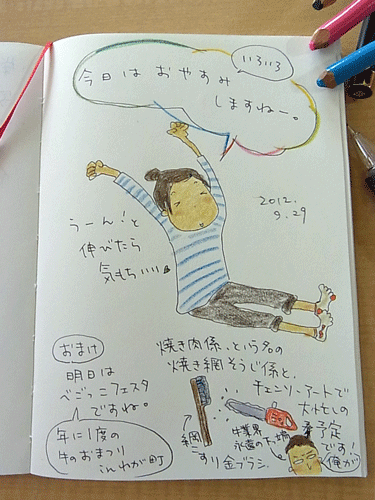 いろいろ
今日はおやすみ
しますねー。
2012.
9.29
うーん！と
伸びたら
気もちいい
おまけ
明日は
べごっこフェスタ
ですね。
年に1度の
牛のおまつり
inわが町
焼き肉係、という名の
焼き網そうじ係と、
チェンソーアートで
予定
です！
網
こすり金ブラシ。
牛業界
永遠の下っ端
(俺が)